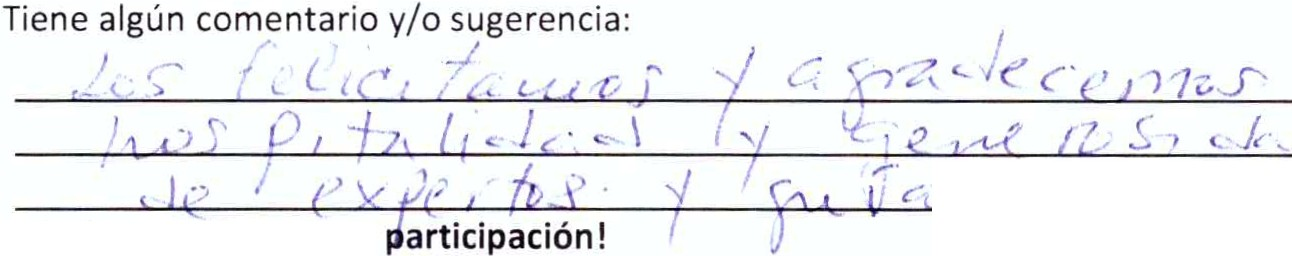 Tiene algún comentario y/o sugerencia:
Los felicitamos y agradecemos
hospitalidad y generosida
de expertos y guía
participación!